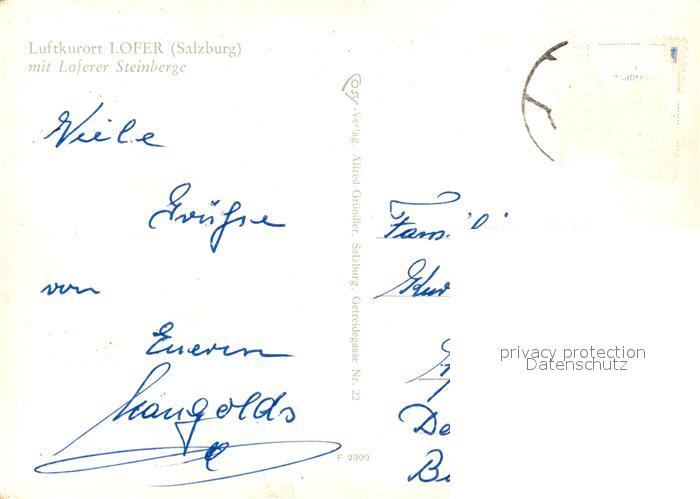 Luftkurort LOFER (Salzburg)
mit Loferer Steinberge
Viele
Grüße
von
Eueren
Mangolds
Cosy-Verlag, Alfred Gründler, Salzburg, Getreidegasse Nr. 22
F 2309
Famili
Kur
De
privacy protection
Datenschutz